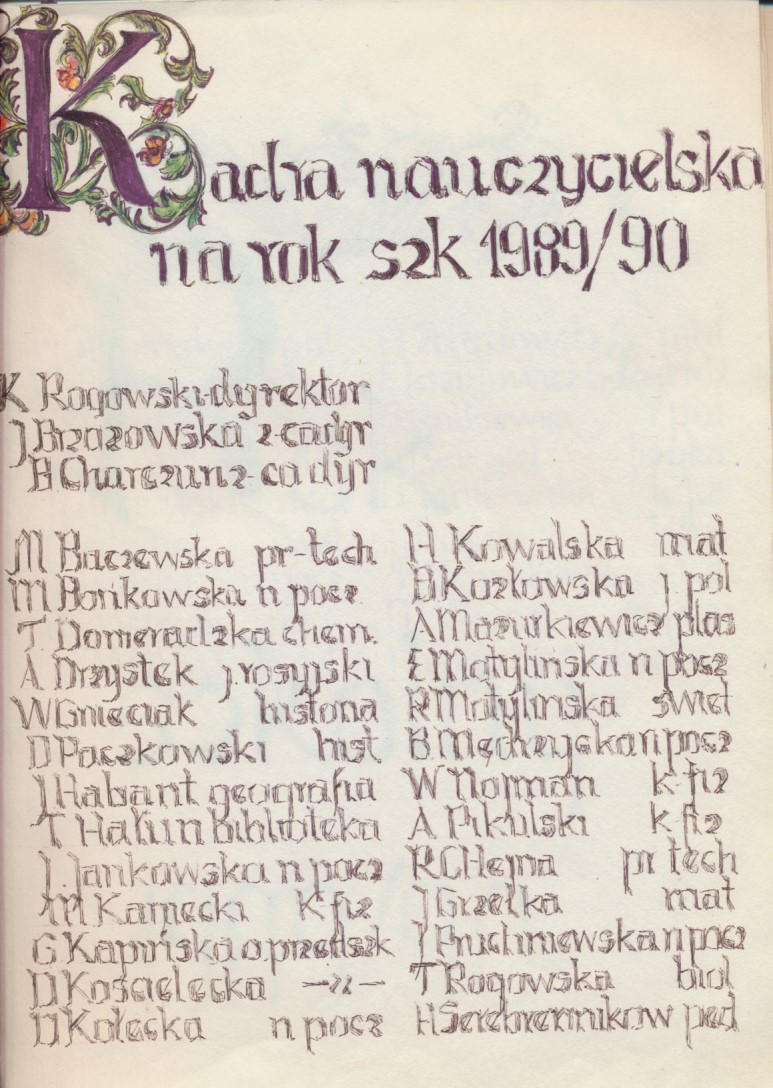 Kadra nauczycielska
na rok szk 1989/90
K Rogowski-dyrektor
J Brzozowska z-ca dyr
B Charczun z-ca dyr
M Baczewska pr-tech
M Bońkowska n pocz
T Domeradzka chem.
A Drzystek j.rosyjski
W Gnieciak historia
D Paczkowski hist
J Habant geografia
T Hałun Biblioteka
J. Jankowska n pocz
M Karnecki K fiz
G Kapińska o.przedszk
D Kościelecka -"-
D Kołecka n pocz
H Kowalska mat
B Kozłowska j. pol
A Mazurkiewicz plas
E Motylińska n pocz
R Motylińska świet
B Mędrzycka n pocz
W Nojman k-fiz
A Pikulski k-fiz
R CHejna pr tech
J Grzelka mat
J Pruchniewska n pocz
T Rogowska biol
H Serebrennikow ped